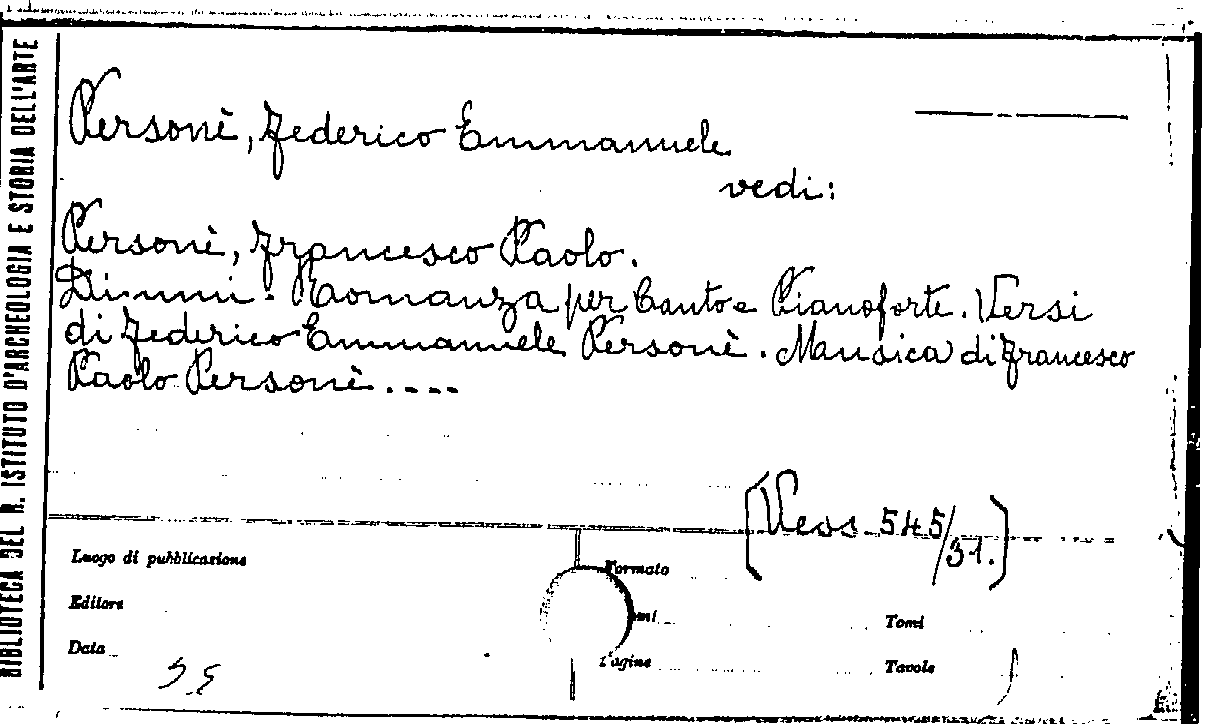 BIBLIOTECA DEL R. ISTITUTO D'ARCHEOLOGIA E STORIA DELL'ARTE
Personè, Federico Emmanuele
vedi:
Personè, Francesco Paolo.
Dimmi. Romanza per Canto e Pianoforte. Versi
di Federico Emmanuele Personè. Musica di Francesco
Paolo Personè....
[Vess 545/31.]
Luogo di pubblicazione
Formato
Editore
Tomi
Data
Pagine
Tavole